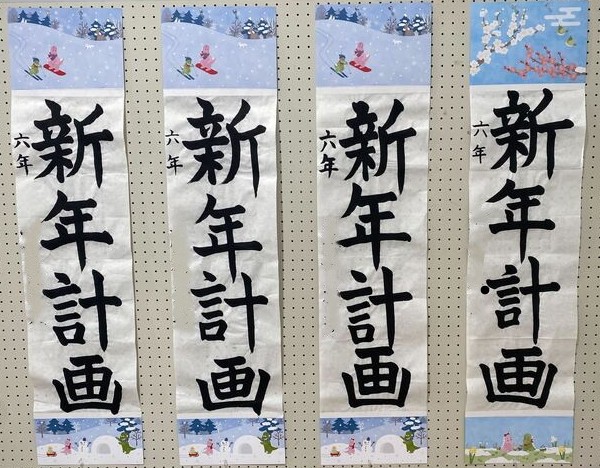 新年計画
六年
新年計画
六年
新年計画
六年
新年計画
六年